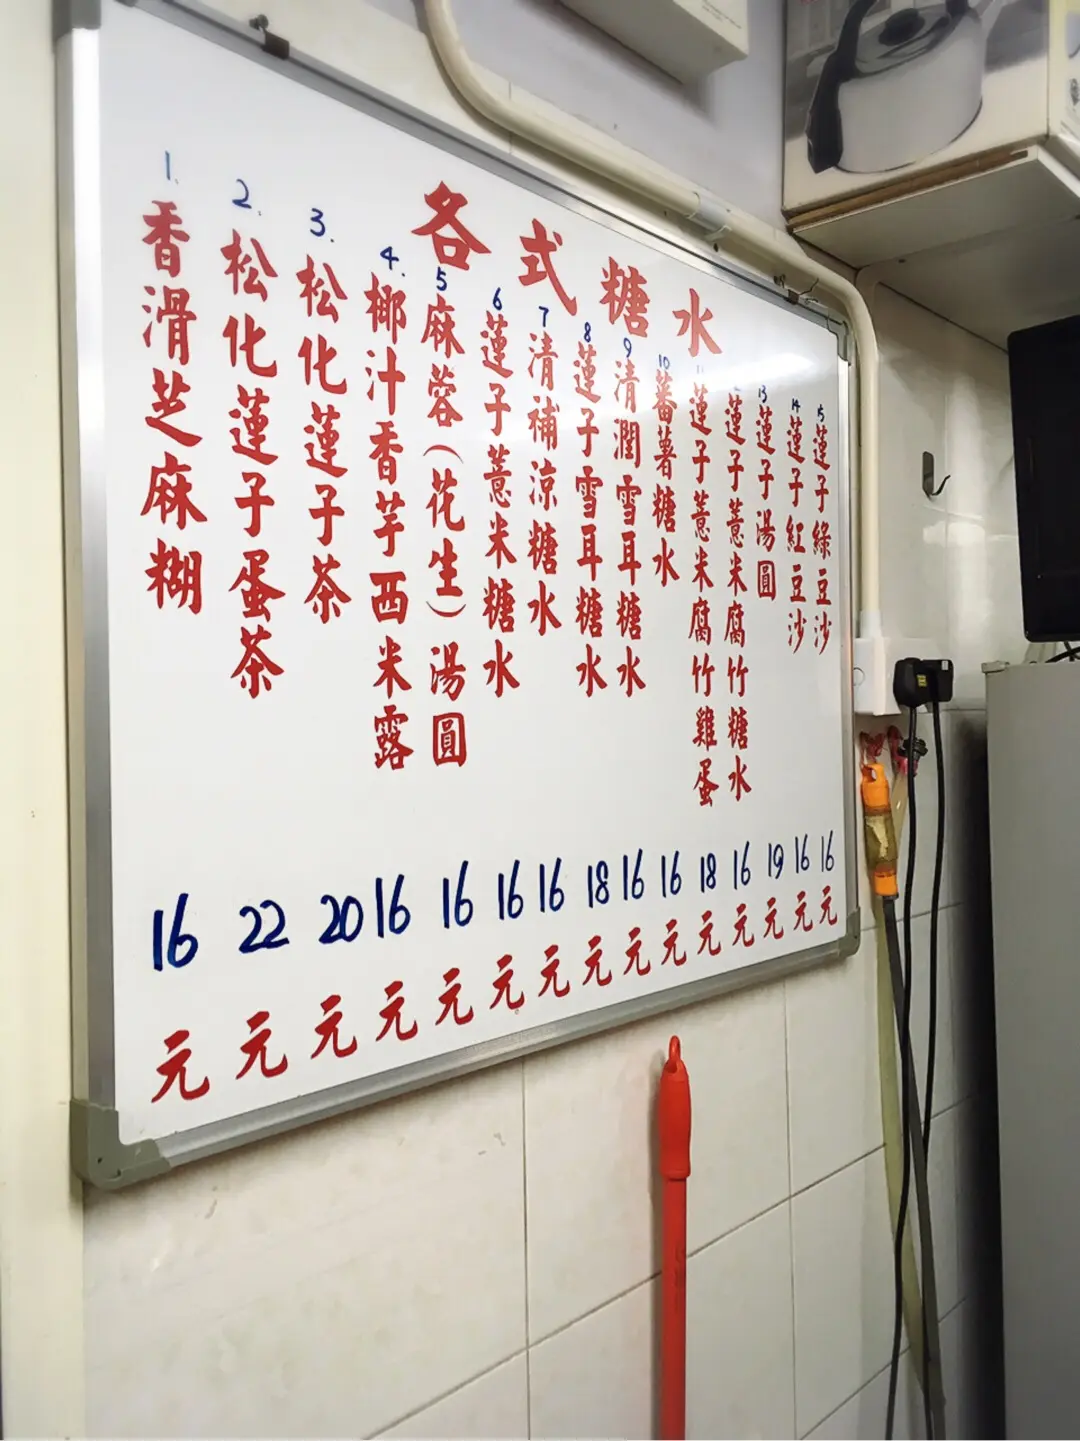 各式糖水
1. 香滑芝麻糊 16元
2. 松化蓮子蛋茶 22元
3. 松化蓮子茶 20元
4. 椰汁香芋西米露 16元
5 麻蓉(花生)湯圓 16元
6 蓮子薏米糖水 16元
7 清補涼糖水 16元
8 蓮子雪耳糖水 18元
9 清潤雪耳糖水 16元
10 蕃薯糖水 16元
11 蓮子薏米腐竹雞蛋 18元
12 蓮子薏米腐竹糖水 16元
13 蓮子湯圓 19元
14 蓮子紅豆沙 16元
15 蓮子綠豆沙 16元